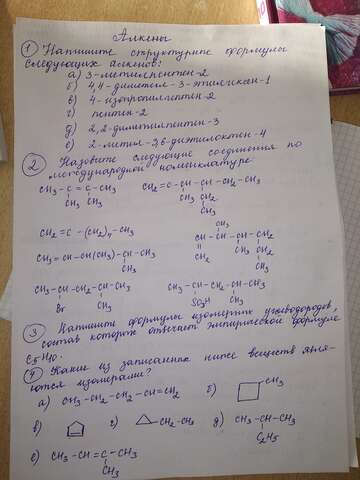 Алкены
① Напишите структурные формулы
следующих алкенов:
а) 3-метилпентен-2
б) 4,4-диметил-3-этилгексен-1
в) 4-изопропилгептен-2
г) пентен-2
д) 2,2-диметилпентен-3
е) 2-метил-3,6-диэтилоктен-4
② Назовите следующие соединения по
международной номенклатуре:
CH₃-C=C-CH₃ CH₂=C-CH-CH-CH₂-CH₃
CH₃ CH₃ CH₃ CH₂
CH₃
CH₃
CH₂=C-(CH₂)₄-CH₃ CH-CH-CH-CH₂
CH₂ CH₂ CH₃
CH₃=CH-CH(CH₃)-CH-CH₃ CH₃
CH₃
CH₃-CH-CH₂-CH-CH₃ CH₃-CH-CH₂-CH-CH₃
Br CH₃ SO₃H CH₃
③ Напишите формулы изомерных углеводородов,
состав которых отвечает эмпирической формуле
C₅H₁₀.
④ Какие из записанных ниже веществ явля-
ются изомерами?
а) CH₃-CH₂-CH₂-CH=CH₂ б) CH₃
в) г) CH₂-CH₃ д) CH₃-CH-CH₃
C₂H₅
е) CH₃-CH=C-CH₃
CH₃